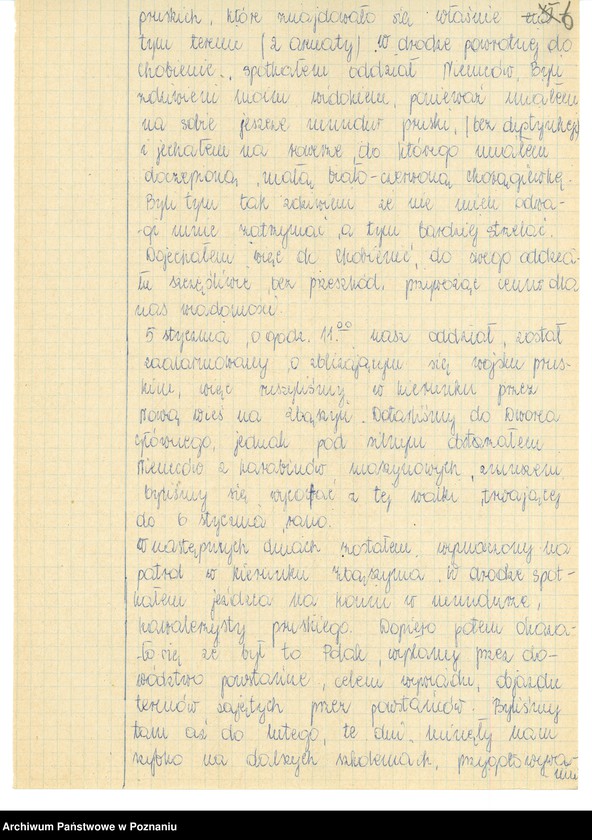 pruskich, które znajdowało się właśnie na
tym terenie (2 armaty). W drodze powrotnej do
Chobienic, spotkałem oddział Niemców. Byli
zdziwieni moim widokiem, ponieważ miałem
na sobie jeszcze mundur pruski, (bez dystynkcji)
i jechałem na rowerze, do którego miałem
doczepioną małą biało-czerwoną chorągiewkę.
Byli tym tak zdziwieni że nie mieli odwa-
gi mnie zatrzymać, a tym bardziej strzelać.
Dojechałem więc do Chobienic, do swego oddzia-
łu szczęśliwie, bez przeszkód, przywożąc cenne dla
nas wiadomości.
5 stycznia, o godz. 11.00 nasz oddział, został
zaalarmowany, o zbliżającym się wojsku prus-
kim, więc ruszyliśmy w kierunku przez
Nową Wieś na Zbąszyń. Dotarliśmy do Dworca
głównego, jednak pod silnym obstrzałem
Niemców z karabinów maszynowych, zmuszeni
byliśmy się wycofać z tej walki, trwającej
do 6 stycznia rano.
W następnych dniach zostałem, wyznaczony na
patrol w kierunku Zbąszynia. W drodze spot-
kałem jeźdźca na koniu w mundurze,
kawalerzysty pruskiego. Dopiero potem okaza-
ło się że był to Polak, wysłany przez do-
wództwo powstańcze, celem wywiadu, objazdu
terenów zajętych przez powstańców. Byliśmy
tam aż do lutego, te dni minęły nam
szybko na dalszych szkoleniach, przygotowywa-
niu
Archiwum Państwowe w Poznaniu